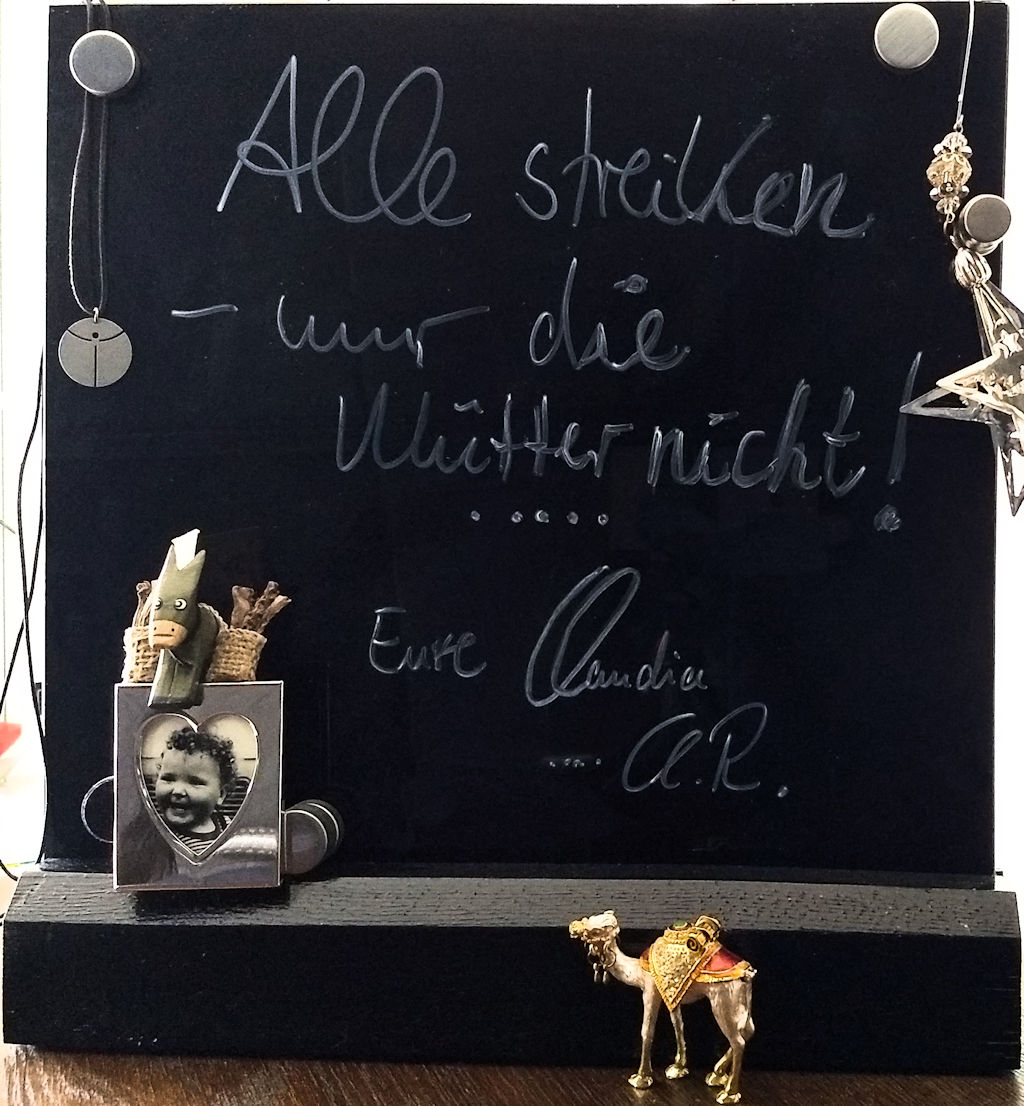 Alle streiken
– nur die
Mütter nicht!
.....
Eure Claudia
.... A.R.